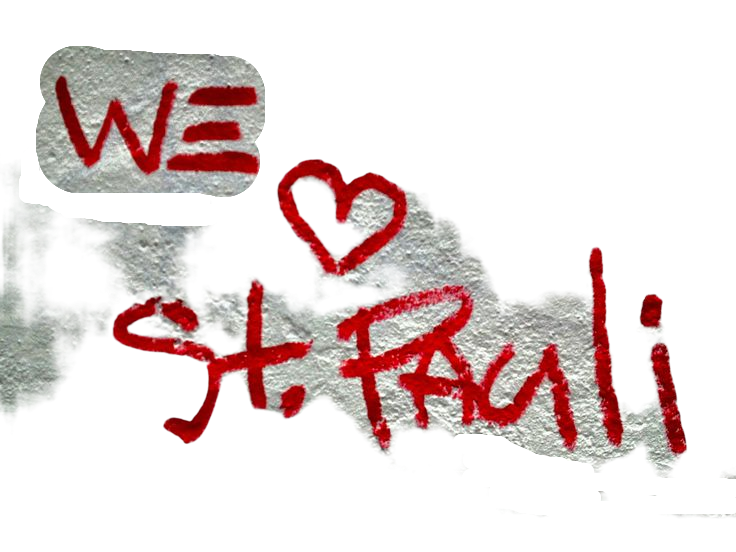 WE
♡
St. PAuli